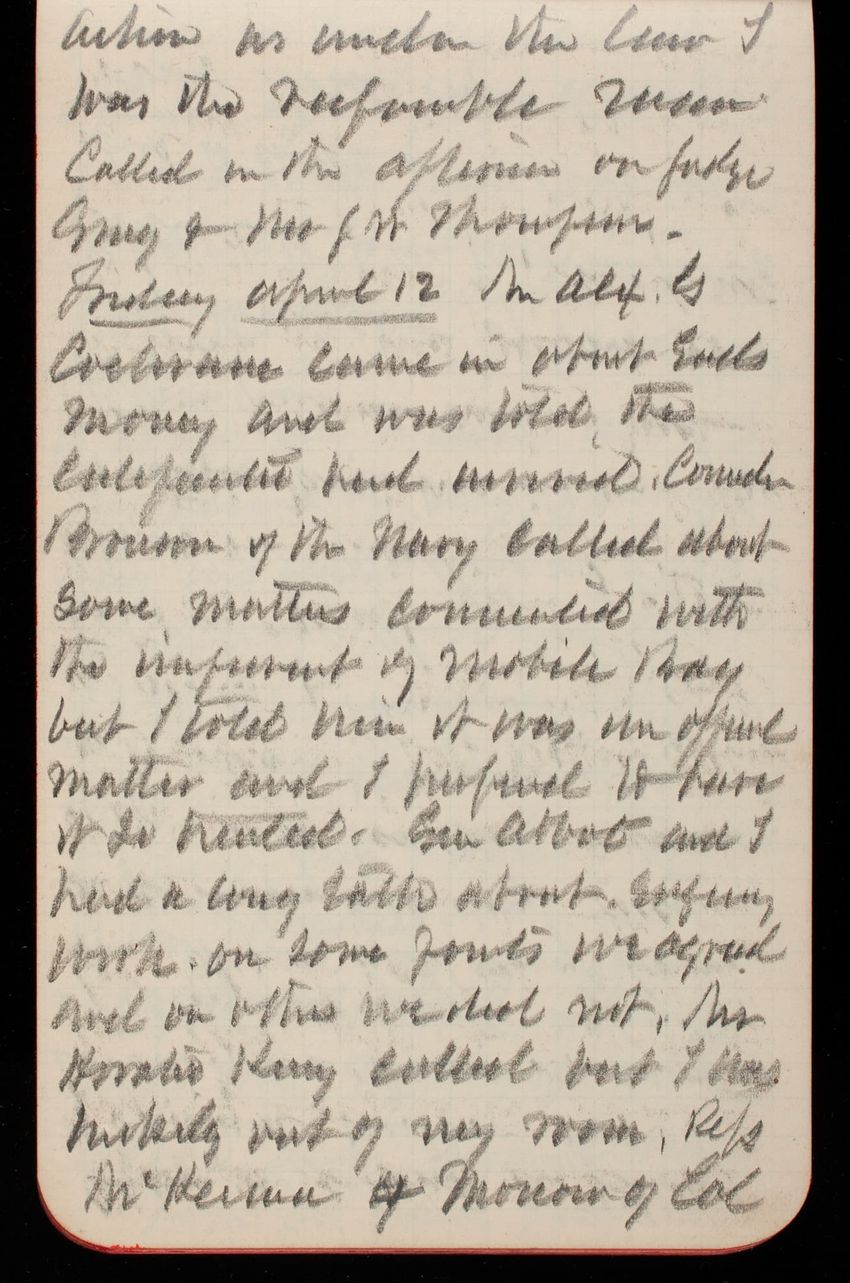 action as under the law I
was the responsible man
Called in the afternoon on Judge
Gray & Mrs J W Thompson.
Friday April 12 Mr Alex. G
Cochrane came in about Eads
money and was told, the
had arrived. Comdr
Brown of the Navy called about
some matters connected with
the improvnt of Mobile Bay
but I told him it was an official
matter and I prefered to have
it so treated. Gen Abbot and I
had a long talk about. Engineer
work. on some points we agreed
and on others we did not. Mr
Horatio King called but I was
luckily out of my room, Reps
McKenna & Morrow of Cal